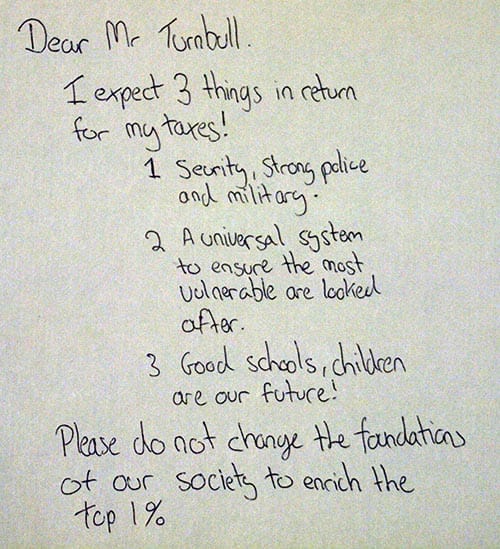 Dear Mr Turnbull.
I expect 3 things in return
for my taxes!
1 Security, strong police
and military.
2 A universal system
to ensure the most
vulnerable are looked
after.
3 Good schools, children
are our future!
Please do not change the foundations
of our society to enrich the
top 1%